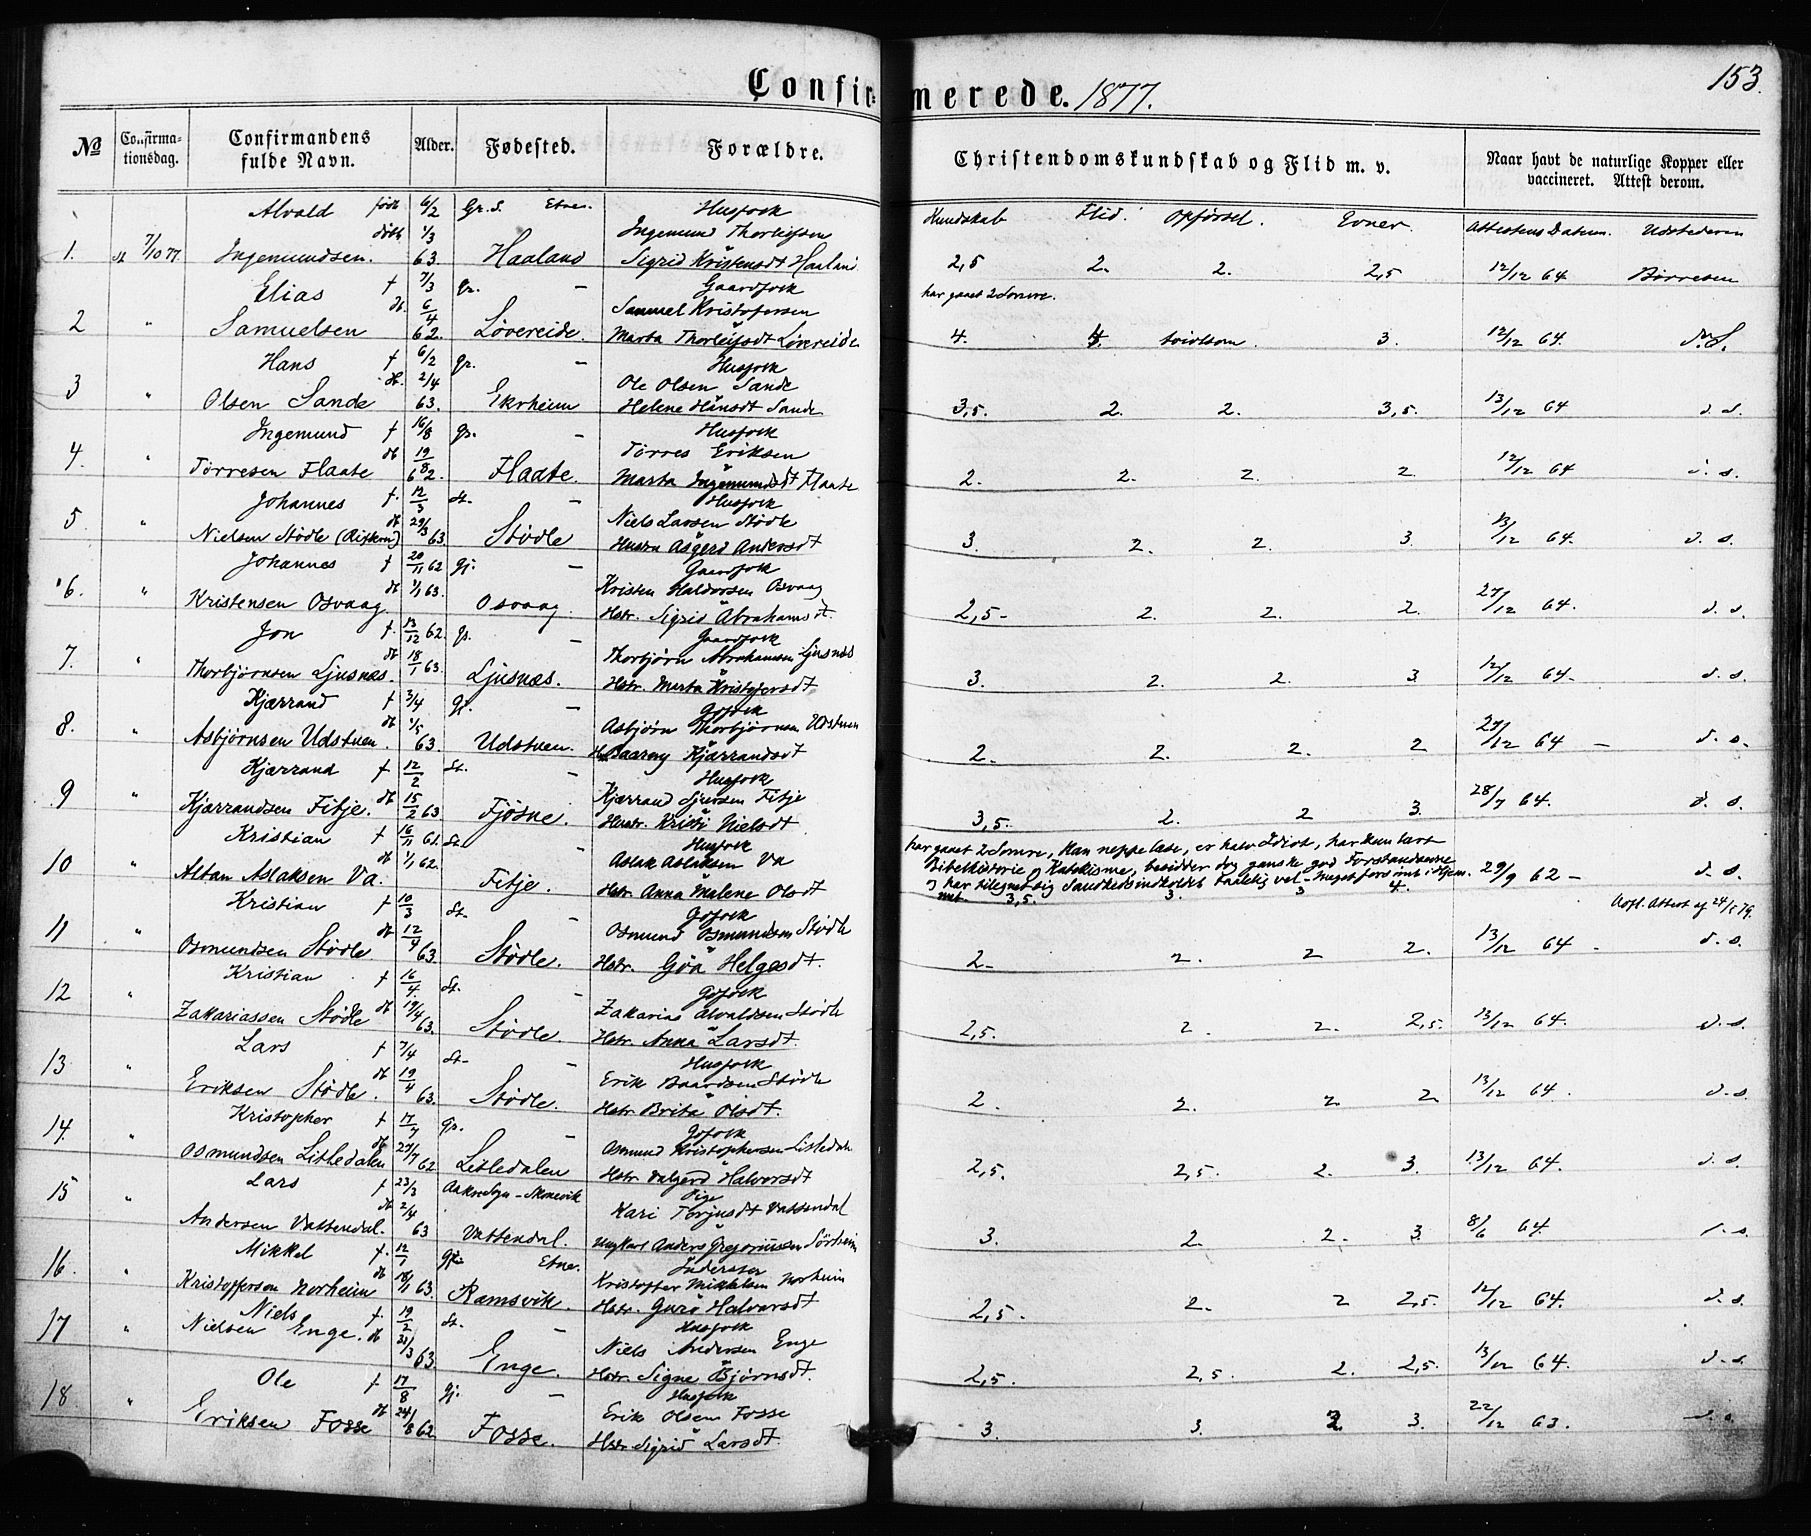 Confirmerede. 1877.
153.
№ Confirmationsdag. Confirmandens fulde Navn. Alder. Fødested. Forældre. Christendomskundskab og Flid m. v. Naar havt de naturlige Kopper eller vaccineret. Attest derom.
Kundskab Flid. Opførsel. Evner. Attestens Datum. Udstederen
Alvald født 6/2 Gr. S. Etne. Husfolk
døbt 1/3 Ingemund Thorleifsen
1. St 7/10 77 Ingemundsen. 63. Haaland Sigrid Kristensdt Haaland 2,5 2. 2. 2,5 12/12 64 Børresen
Elias f 7/3 Gr. – Gaardfolk har gaaet 2 Somre.
db 6/4 Samuel Kristofersen
2 " Samuelsen 62. Løvereide. Marta Thorleifsdt Løvereide 4. 4. tvivlsom. 3. 12/12 64. d. S.
Hans f 6/2 Gr. – Husfolk
db. 2/4 Ole Olsen Sande
3 " Olsen Sande 63. Ekrheim Helene Hansdt Sande 3,5. 2. 2. 3,5. 13/12 64 d. s.
Ingemund f 16/8 Gr. – Husfolk
db 19/8 Tørres Eriksen
4. " Tørresen Flaate 62. Flaate. Marta Ingemundsdt Flaate 2. 2. 2. 2. 12/12 64 d. s.
Johannes f. 12/3 St. – Husfolk
db 29/3 Niels Larsen Stødle
5 " Nielsen Stødle 63 Stødle Hustru Asgerd Andersdt 3. 2. 2. 3. 13/12 64. d. s.
Johannes f 20/11 62 Gj. – Gaardfolk
db 1/1 63. Kristen Haldorsen Osvaag
6. " Kristensen Osvaag Osvaag. Hstr. Sigrid Abrahamsdt. 2,5- 2. 2. 2. 27/12 64. d. s.
Jon f. 13/12 62. Gr. – Gaardfolk
db 18/1 63. Thorbjørn Abrahamsen Ljusnæs
7. " Thorbjørnsen Ljusnæs. Ljusnæs. Hstr. Marta Kristofersdt 3. 2. 2. 3 12/12 64- d. s.
Kjærrand f 3/4 Gj. – Gdfolk
db 1/5 Asbjørn Thorbjørnsen Udstuen
8. " Asbjørnsen Udstuen. 63. Udstuen. Kjærrandsdt 2. 2. 2. 2 27/12 64 – d. s.
Kjærrand f 12/2 St. – Husfolk
db 15/2 63 Kjærrand Sjursen Fitje
9 " Kjærrandsen Fitje. Fjøsne. Hustr. Kristi Nielsdt 3,5. 2. 2 3. 28/7 64. d. s.
Kristian f 16/11 61. St. Husfolk har gaaet 2 Somre, Kan neppe læse, er halv Idiot, har kun lært
db 1/1 62. Aslak Aslaksen Va Bibelhistorie og Katekisme, besidder dog ganske god Forstandsevne
10 " Altan Aslaksen Va. Fitje. Hstr. Anna Malene Olsdt og har tilegnet sig Sandhedsindholdet taalelig vel – meget forsømt i Hjemmet. 3,5. 3. 3 4. 29/9 62 – d. s.
Kristian f 10/3 St. – Gdfolk Udfl. Attest af 24/5 79.
db 12/4 Osmund Osmundsen Stødle
11 " Osmundsen Stødle 63 Stødle. Hstr. Gøa Helgesdt. 2- 2. 2 2. 13/12 64 - d. s.
Kristian f 16/4. St. – Gdfolk
db 19/4 Zakarias Alvaldsen Stødle
12 " Zakariassen Stødle 63. Stødle. Hstr. Anna Larsdt. 2,5. 2. 2. 2,5. 13/12 64. d. s.
Lars f 7/4 St- – Husfolk
db 19/4 Erik Baardsen Stødle
13. " Eriksen Stødle. 63. Stødle. Hstr. Brita Olsdt. 2. 2. 2 2 13/12 64. d. s.
Kristopher f 17/7 Gr. – Gdfolk
db 27/7 Osmund Kristophersen Litledalen
14. " Osmundsen Litledalen 62 Litledalen Hstr. Valgerd Halvorsdt 2,5. 2,5. 2. 3. 13/12 64. d. s.
Lars f 23/3 Aakredbygn – Skonevik Pige
db 2/4 Kari Torjusdt Vattendal
15 " Andersen Vattendal. 63 Vattendal. Ungkarl Anders Gregoriussen Sørheim 3. 2. 2. 3. 8/6 64. d. s.
Mikkel f. 12/1 Etne. Inderster
db 18/1 63. Kristoffer Mikkelsen Norheim
16. " Kristoffersen Norheim Ramsvik. Hstr. Guro Halvarsdt 2,5. 2. 2 2,5. 12/12 64. d. s.
Niels f. 19/2 St. – Husfolk
17 " Nielsen Enge. db 21/3 63. Enge. Niels Andersen Enge
Hstr. Signe Bjørnsdt. 2,5. 2,5. 2. 2,5. 13/12 64. d. s.
Ole f 17/8 Gj. – Husfolk
db 24/8 62 Erik Olsen Fosse
18 " Eriksen Fosse Fosse. Hstr Sigrid Larsdt. 3. 3. 2. 3. 22/12 63. d. s.